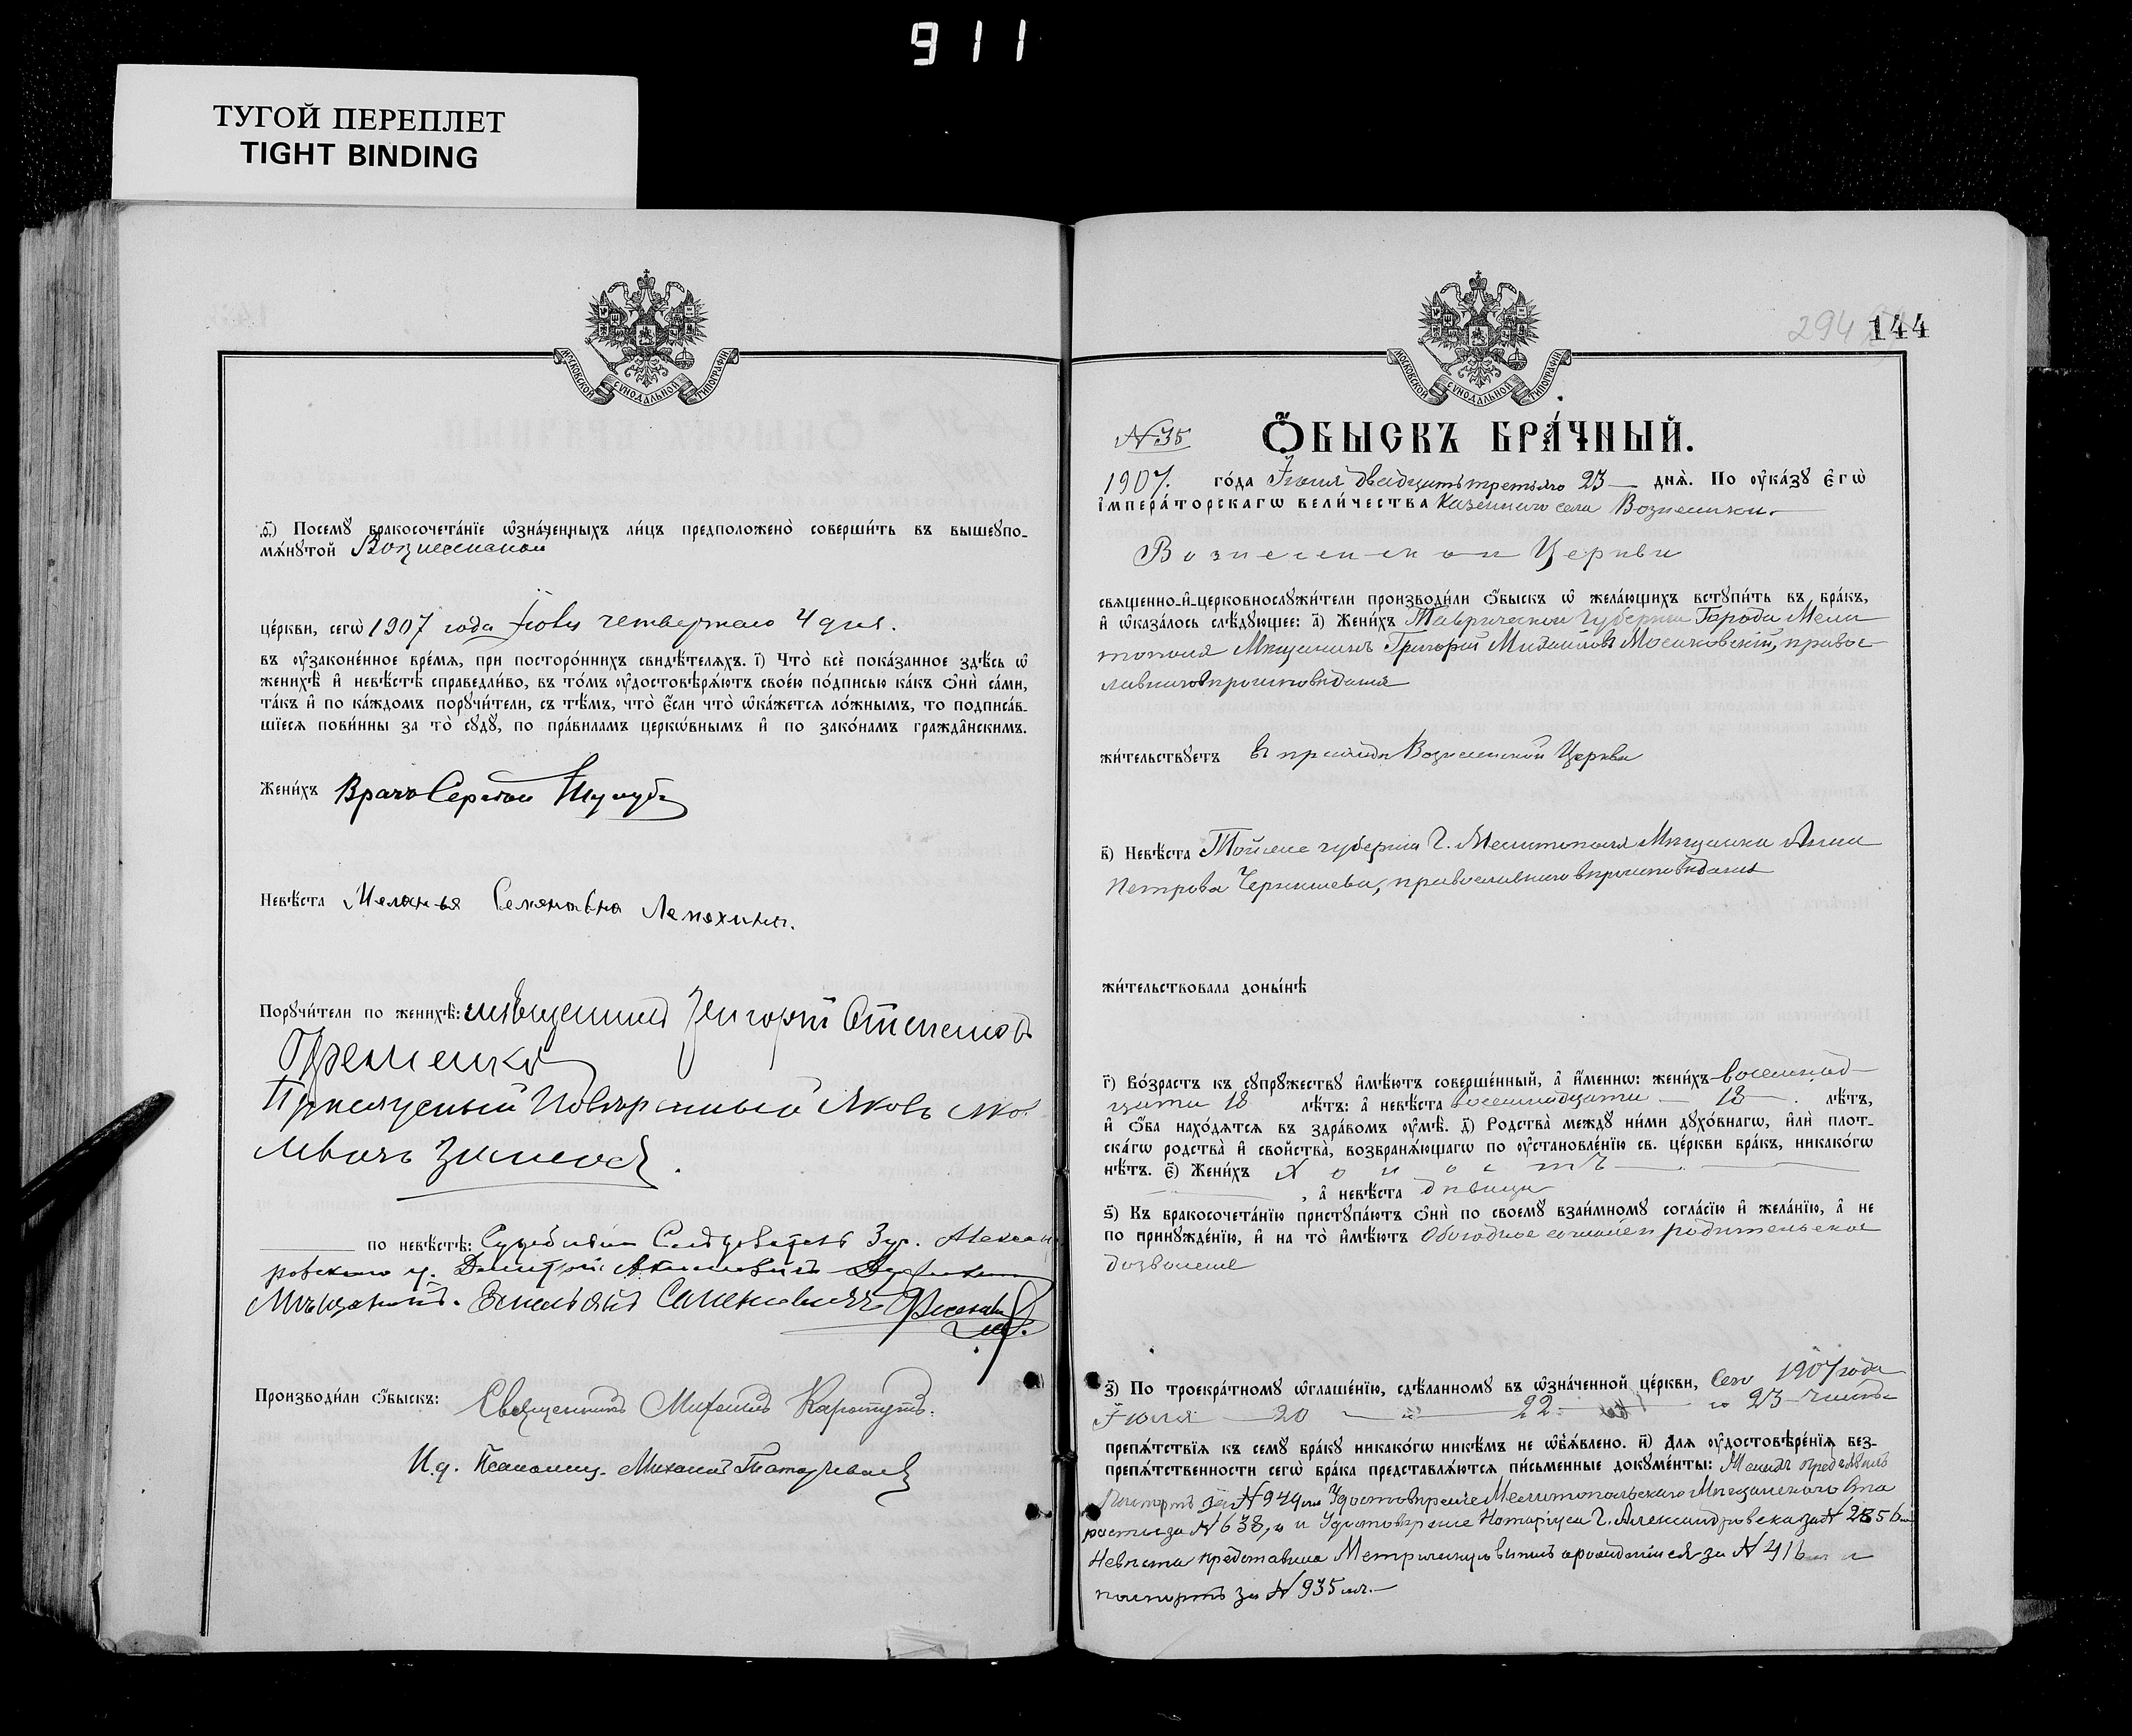 911
ТУГОЙ ПЕРЕПЛЕТ
TIGHT BINDING
МОСКОВСКОЙ СѴНОДАЛЬНОЙ ТИПОГРАФІИ
ѳ҃) Посемꙋ бракосочета́нїе ѡ҆зна́ченныхъ ли́цъ предположено̀ соверши́ть въ вышеꙋпо-
мѧ́нꙋтой Вознесенской
це́ркви, сегѡ̀ 1907 года Іюля четвертаго 4 дня.
въ ᲂу҆законе́нное вре́мѧ, при посторо́ннихъ свидѣ́телѧхъ. і҃) Что̀ всѐ пока́занное здѣ́сь ѡ҆
женихѣ̀ и҆ невѣ́стѣ справедли́во, въ то́мъ ᲂу҆достовѣрѧ́ютъ свое́ю по́дписью ка́къ ѻ҆нѝ са́ми,
та́къ и҆ по ка́ждомъ порꙋчи́тели, съ тѣ́мъ, что̀ є҆́сли что̀ ѡ҆ка́жетсѧ ло́жнымъ, то подписа́в-
шїесѧ пови́нны за то̀ сꙋдꙋ̀, по пра́виламъ церкѡ́внымъ и҆ по зако́намъ гражда̂нскимъ.
Жени́хъ Врачъ
Невѣ́ста Меланья Семеновна Лепехина.
Порꙋчи́тели по женихѣ̀: мѣщанинъ Григорій
Присяжный Повѣренный Яковъ Яков
левичъ
по невѣ́стѣ: Судебный Слѣдователь Алексан
ровскаго у. Дмитрій
Мѣщанинъ. Емельянъ Семеновичъ
Производи́ли ѻ҆́быскъ: Священникъ Михаилъ
И.д. Псаломщ. Михаилъ
МОСКОВСКОЙ СѴНОДАЛЬНОЙ ТИПОГРАФІИ
294 144
N 35 Ѻ҆́БЫСКЪ БРА́ЧНЫЙ.
1907. го́да Іюня двадцать третьяго 23 днѧ̀. По ᲂу҆ка́зꙋ є҆гѡ̀
і҆мпера́торскагѡ вели́чества Казеннаго села Вознесенки.
Вознесенской Церкви
свѧщенно-и҆-церковнослꙋжи́тели производи́ли ѻ҆́быскъ ѡ҆ жела́ющихъ встꙋпи́ть въ бра́къ,
и҆ ѡ҆каза́лось слѣ́дꙋющее: а҃) Жени́хъ Таврической Губерніи Города Мели
тополя Мѣщанинъ Григорій Михаиловъ Мосиковскій, правос
лавнаго вѣроисповѣданія
жи́тельствꙋетъ въ приходѣ Вознесенской Церкви
в҃) Невѣ́ста Той же губерніи Г. Мелитополя Мѣщанка Анна
Петрова Чернышева, православнаго вѣроисповѣданія
жи́тельствовала доны́нѣ
г҃) Во́зрастъ къ сꙋпрꙋ́жествꙋ и҆мѣ́ютъ соверше́нный, а҆ и҆́меннѡ: жени́хъ восемнад
цати 18 лѣ́тъ: а҆ невѣ́ста восемнадцати 18. лѣ́тъ,
и҆ ѻ҆́ба нахо́дѧтсѧ въ здра́вомъ ᲂу҆мѣ̀. д҃) Родства̀ междꙋ̀ ни́ми дꙋхо́внагѡ, и҆лѝ плот-
ска́гѡ родства̀ и҆ свойства̀, возбранѧ́ющагѡ по ᲂу҆становле́нїю св. це́ркви бра́къ, никако́гѡ
нѣ́тъ. є҃) Жени́хъ Холостъ
, а҆ невѣ́ста дѣвица
ѕ҃) Къ бракосочета́нїю пристꙋпа́ютъ ѻ҆нѝ по своемꙋ̀ взаи́мномꙋ согла́сїю и҆ жела́нїю, а҆ не
по принꙋжде́нїю, и҆ на то̀ и҆мѣ́ютъ Обоюдное согласіе и родительское
дозволеніе
з҃) По троекра́тномꙋ ѡ҆глаше́нїю, сдѣ́ланномꙋ въ ѡ҆зна́ченной це́ркви, Сего 1907 года
Іюля 20 22 и 23 числъ
препѧ́тствїѧ къ семꙋ̀ бра́кꙋ никако́гѡ никѣ́мъ не ѡ҆б̾ѧ́влено. и҃) Длѧ ᲂу҆достовѣре́нїѧ без-
препѧ́тственности сегѡ̀ бра́ка представлѧ́ютсѧ пи́сьменные докꙋме́нты: Женихъ предъявилъ
Паспортъ за N 949 Удостовѣреніе Мелитопольскаго Мѣщанскаго Ста
росты за N 638, и Удостовѣреніе Нотаріуса Г. Александровска за N 2856
Невѣста представила Метрическую выпись о рожденіи ея за N 416 и
паспортъ за N 935